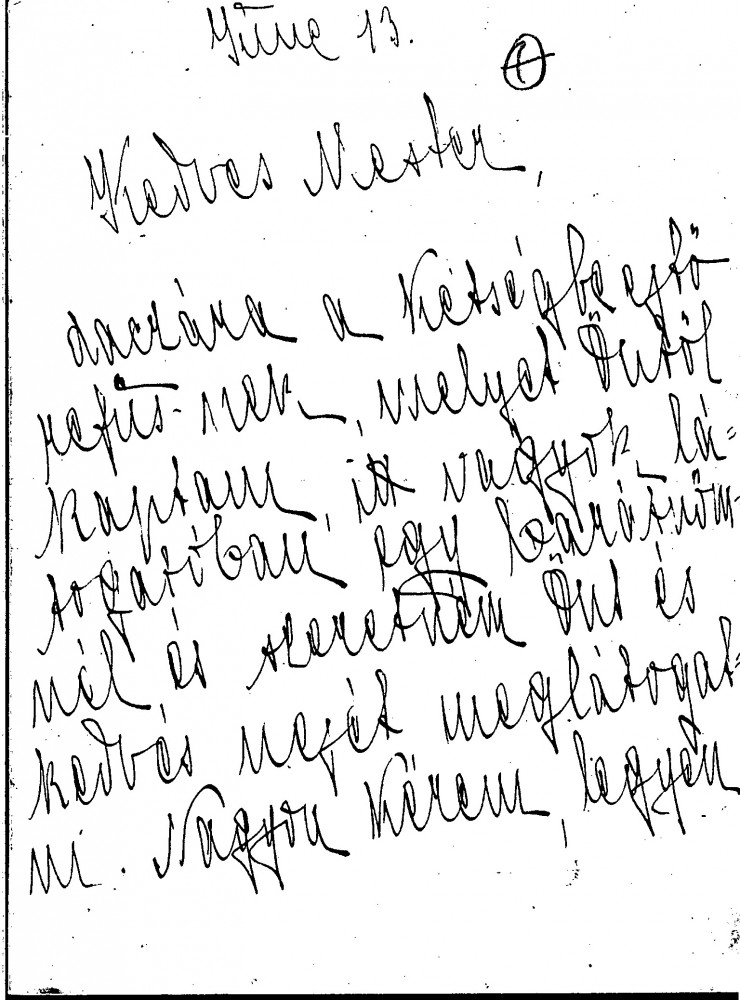 June 13.
①
Kedves Mester,
daczára a kétségbeejtő
refüs-nek, melyet Öntől
kaptam, itt vagyok lá=
togatóban egy barátnőm-
nél és szeretném Önt és
kedves nejét meglátogat=
ni. Nagyon kérem, legyen